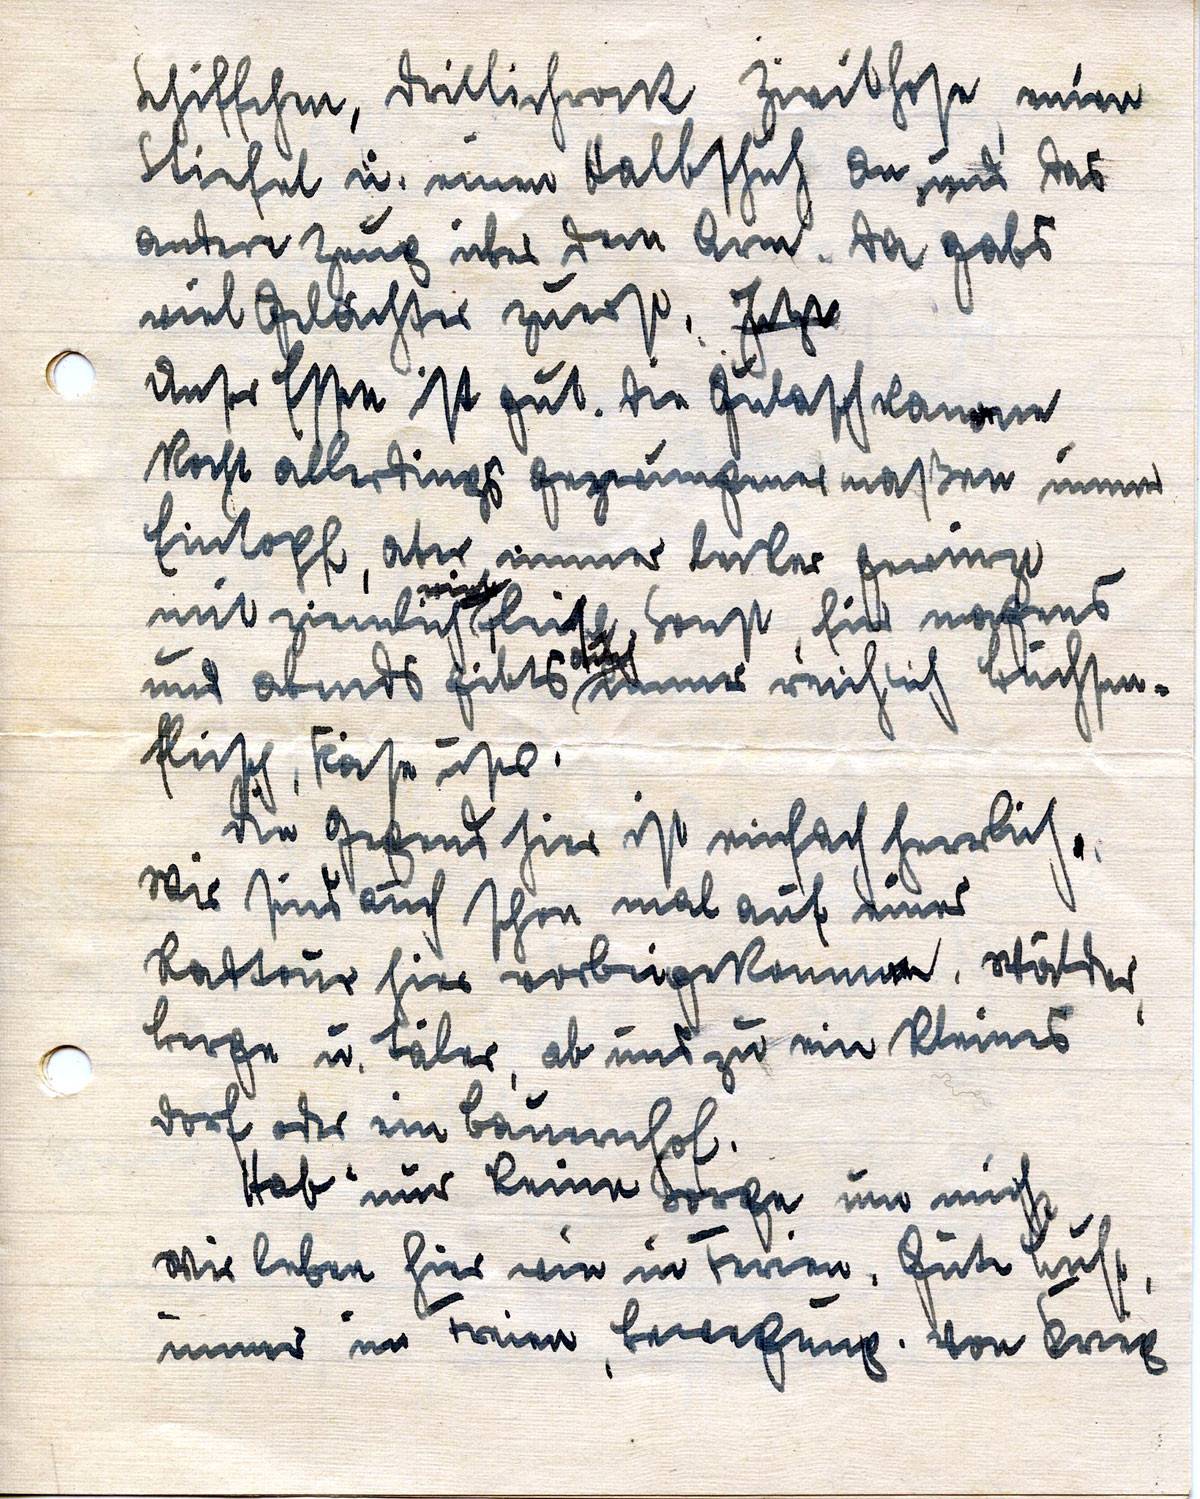 Schiffchen, Drillichrock Zivilhose, einen
Stiefel u. einen Halbschuh an und das
andere Zeug über dem Arm. Da gabs
viel Gelächter zuerst. Jetzt
Unser Essen ist gut. Die Gulaschkanone
kocht allerdings gezwungenermaßen immer
Eintopf, aber immer lecker gewürzt
mit ziemlich viel Fleisch. Sonst, für morgens
und abends gibts auch immer reichlich Büchsen-
fleisch, Käse usw.
Die Gegend hier ist einfach herrlich.
Wir sind auch schon mal auf einer
Radtour hier vorbeigekommen. Wälder,
Berge u. Täler, ab und zu ein kleines
Dorf oder ein Bauernhof.
Hab' nur keine Sorge um mich,
wir leben hier wie in Ferien. Gute Luft,
immer im Freien, Bewegung. Von Krieg